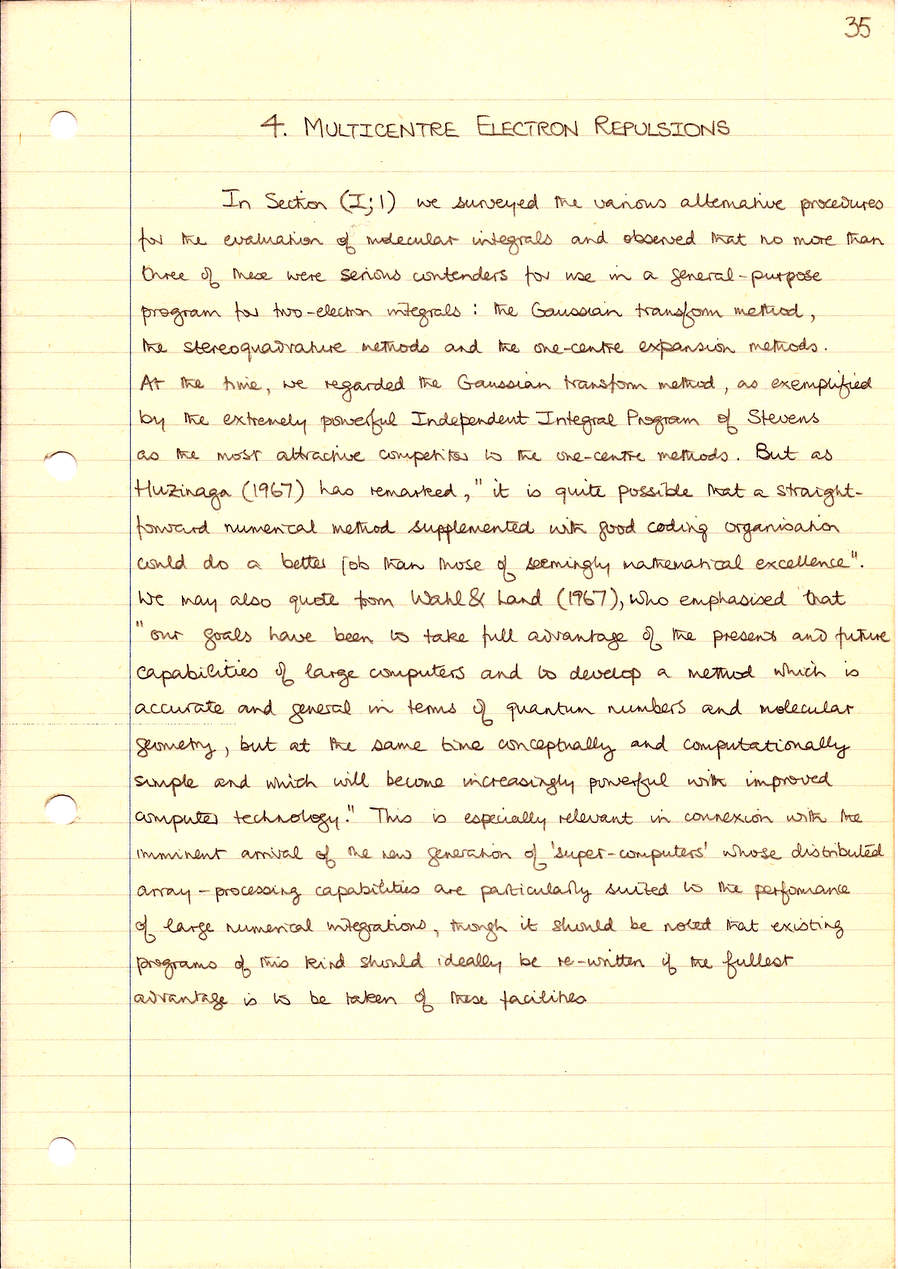 35
4. MULTICENTRE ELECTRON REPULSIONS
In Section (I;1) we surveyed the various alternative procedures
for the evaluation of molecular integrals and observed that no more than
three of these were serious contenders for use in a general-purpose
program for two-electron integrals : the Gaussian transform method,
the stereoquadrature methods and the one-centre expansion methods.
At the time, we regarded the Gaussian transform method, as exemplified
by the extremely powerful Independent Integral Program of Stevens
as the most attractive competitor to the one-centre methods. But as
Huzinaga (1967) has remarked, "it is quite possible that a straight-
forward numerical method supplemented with good coding organisation
could do a better job than those of seemingly mathematical excellence".
We may also quote from Wahl & Land (1967), who emphasised that
"our goals have been to take full advantage of the present and future
capabilities of large computers and to develop a method which is
accurate and general in terms of quantum numbers and molecular
geometry, but at the same time conceptually and computationally
simple and which will become increasingly powerful with improved
computer technology." This is especially relevant in connexion with the
imminent arrival of the new generation of 'super-computers' whose distributed
array-processing capabilities are particularly suited to the performance
of large numerical integrations, though it should be noted that existing
programs of this kind should ideally be re-written if the fullest
advantage is to be taken of these facilities